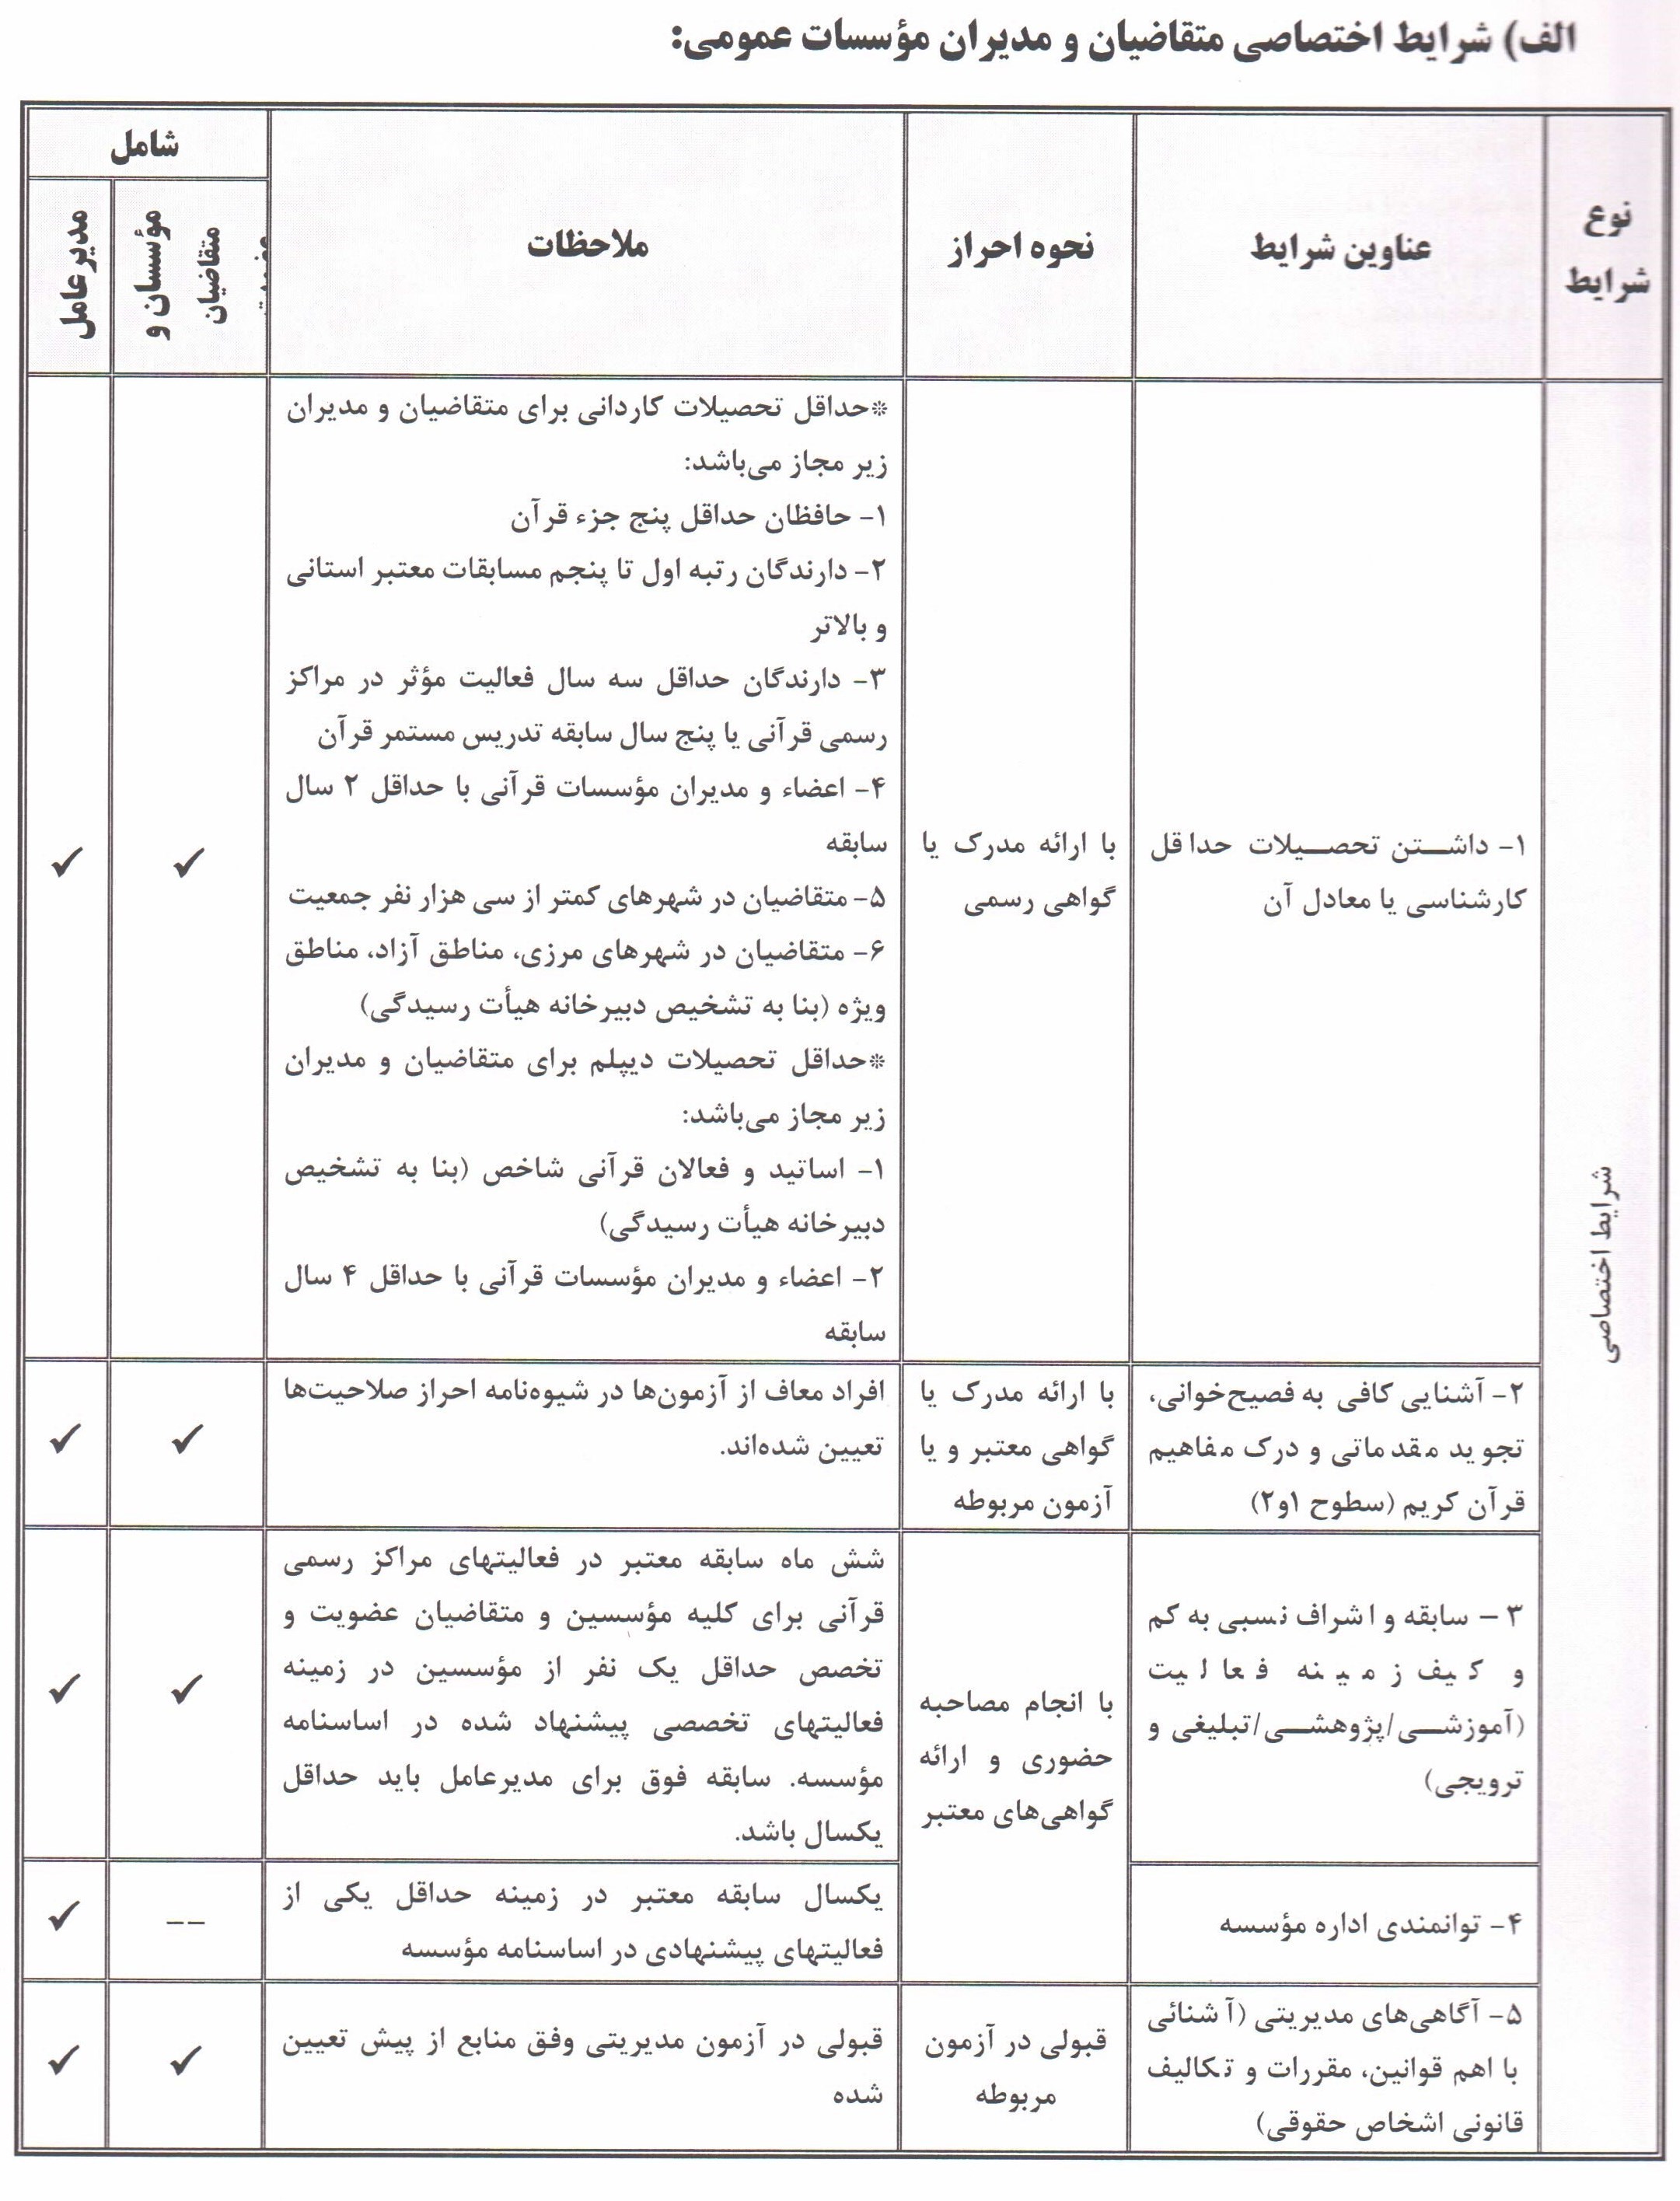 الف) شرایط اختصاصی متقاضیان و مدیران مؤسسات عمومی:
نوع
شرایط
عناوین شرایط
نحوه احراز
ملاحظات
شامل
مؤسسان و
متقاضیان
مدیرعامل
شرایط اختصاصی
۱- داشتن تحصیلات حداقل
کارشناسی یا معادل آن
با ارائه مدرک یا
گواهی رسمی
*حداقل تحصیلات کاردانی برای متقاضیان و مدیران
زیر مجاز می‌باشد:
۱- حافظان حداقل پنج جزء قرآن
۲- دارندگان رتبه اول تا پنجم مسابقات معتبر استانی
و بالاتر
۳- دارندگان حداقل سه سال فعالیت مؤثر در مراکز
رسمی قرآنی یا پنج سال سابقه تدریس مستمر قرآن
۴- اعضاء و مدیران مؤسسات قرآنی با حداقل ۲ سال
سابقه
۵- متقاضیان در شهرهای کمتر از سی هزار نفر جمعیت
۶- متقاضیان در شهرهای مرزی، مناطق آزاد، مناطق
ویژه (بنا به تشخیص دبیرخانه هیأت رسیدگی)
*حداقل تحصیلات دیپلم برای متقاضیان و مدیران
زیر مجاز می‌باشد:
۱- اساتید و فعالان قرآنی شاخص (بنا به تشخیص
دبیرخانه هیأت رسیدگی)
۲- اعضاء و مدیران مؤسسات قرآنی با حداقل ۴ سال
سابقه
✓
✓
۲- آشنایی کافی به فصیح‌خوانی،
تجوید مقدماتی و درک مفاهیم
قرآن کریم (سطوح ۱و۲)
با ارائه مدرک یا
گواهی معتبر و یا
آزمون مربوطه
افراد معاف از آزمون‌ها در شیوه‌نامه احراز صلاحیت‌ها
تعیین شده‌اند.
✓
✓
۳- سابقه و اشراف نسبی به کم
و کیف زمینه فعالیت
(آموزشی/پژوهشی/تبلیغی و
ترویجی)
با انجام مصاحبه
حضوری و ارائه
گواهی‌های معتبر
شش ماه سابقه معتبر در فعالیتهای مراکز رسمی
قرآنی برای کلیه مؤسسین و متقاضیان عضویت و
تخصص حداقل یک نفر از مؤسسین در زمینه
فعالیتهای تخصصی پیشنهاد شده در اساسنامه
مؤسسه. سابقه فوق برای مدیرعامل باید حداقل
یکسال باشد.
✓
✓
۴- توانمندی اداره مؤسسه
یکسال سابقه معتبر در زمینه حداقل یکی از
فعالیتهای پیشنهادی در اساسنامه مؤسسه
--
✓
۵- آگاهی‌های مدیریتی (آشنائی
با اهم قوانین، مقررات و تکالیف
قانونی اشخاص حقوقی)
قبولی در آزمون
مربوطه
قبولی در آزمون مدیریتی وفق منابع از پیش تعیین
شده
✓
✓